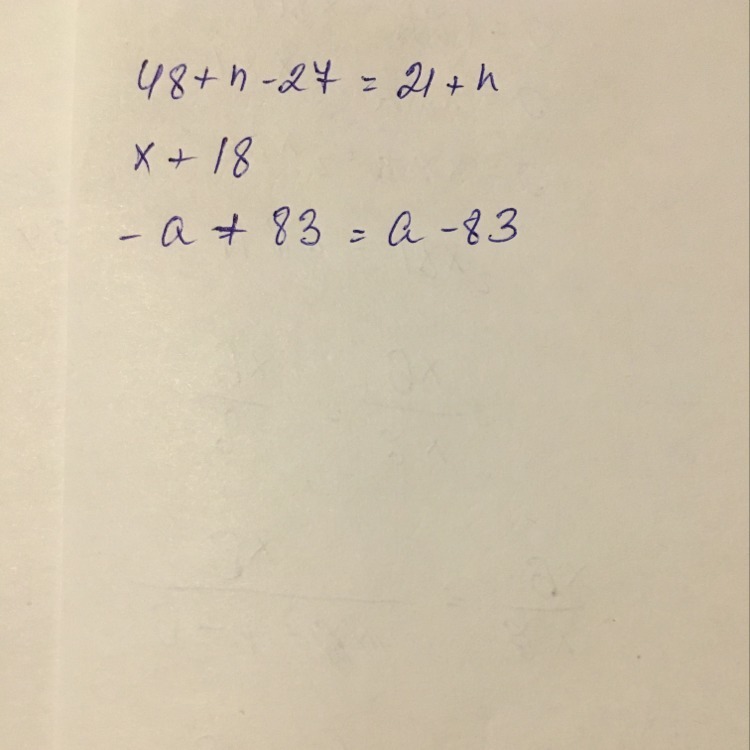 48 + n - 27 = 21 + n
x + 18
- a + 83 = a - 83